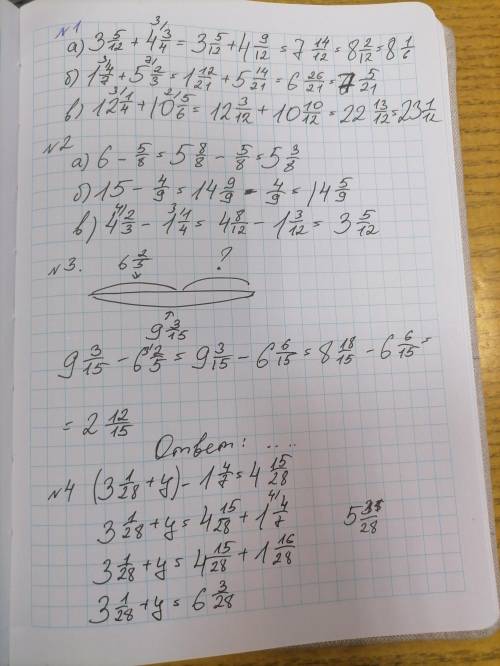 №1
а) 3 5/12 + 4 3/4 = 3 5/12 + 4 9/12 = 7 14/12 = 8 2/12 = 8 1/6
б) 1 4/7 + 5 2/3 = 1 12/21 + 5 14/21 = 6 26/21 = 7 5/21
в) 12 1/4 + 10 5/6 = 12 3/12 + 10 10/12 = 22 13/12 = 23 1/12
№2
а) 6 - 5/8 = 5 8/8 - 5/8 = 5 3/8
б) 15 - 4/9 = 14 9/9 - 4/9 = 14 5/9
в) 4 2/3 - 1 1/4 = 4 8/12 - 1 3/12 = 3 5/12
№3.
6 2/3 ?
9 3/15
9 3/15 - 6 2/5 = 9 3/15 - 6 6/15 = 8 18/15 - 6 6/15 =
= 2 12/15
Ответ: ....
№4 (3 1/28 + y) - 1 4/7 = 4 15/28
3 1/28 + y = 4 15/28 + 1 4/7 5 31/28
3 1/28 + y = 4 15/28 + 1 16/28
3 1/28 + y = 6 3/28